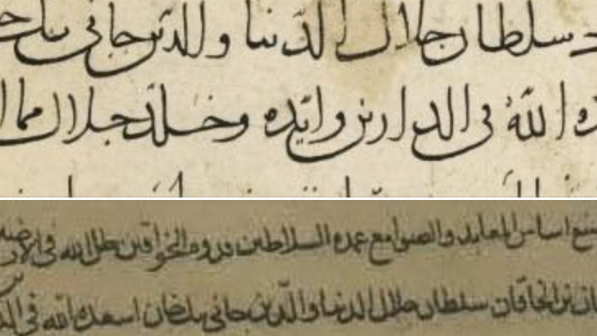 سلطان جلال الدنيا والدين جانى بك
الله فى الدارين وايّده وخلّد جلال
اساس المعابد والصوامع عمده السلاطين قدوه الخواقين ظل الله فى
بن الخاقان سلطان جلال الدنيا والدّين جانى بك خان اسعده الله فى